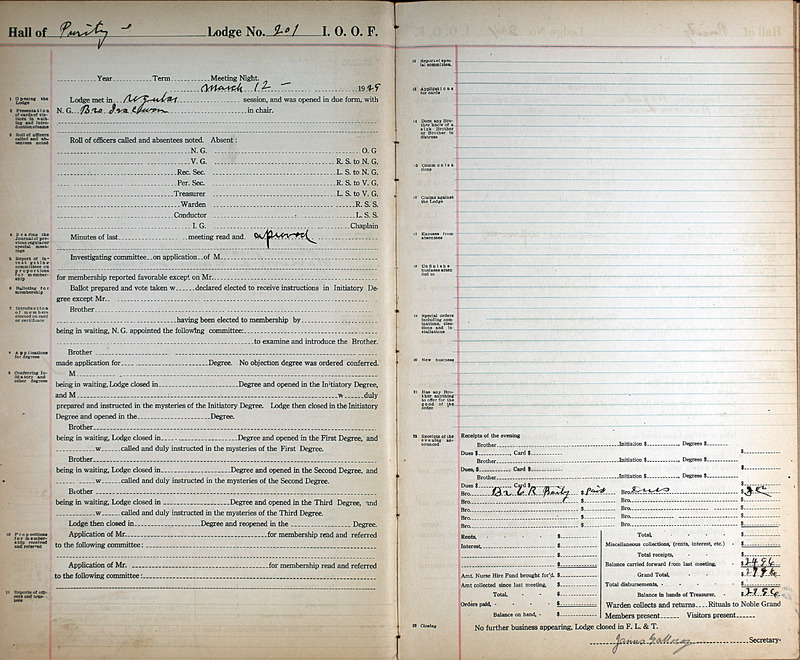 Hall of Purity Lodge No. 201 I. O. O. F.
Year Term Meeting Night.
March 12 - 1929
1 Opening the Lodge
Lodge met in regular session, and was opened in due form, with
N. G. Bro. in chair.
2 Presentation of cards of visitors in waiting and introduction of same
3 Roll of officers called and absentees noted
Roll of officers called and absentees noted. Absent:
N. G. O. G
V. G. R. S. to N. G.
Rec. Sec. L. S. to N. G.
Per. Sec. R. S. to V. G.
Treasurer L. S. to V. G.
Warden R. S. S.
Conductor L. S. S.
I. G. Chaplain
4 Reading the Journal of previous regular or special meetings
Minutes of last meeting read and approved
5 Report of Invest gating committees on propositions for membership
Investigating committee on application of M
for membership reported favorable except on Mr.
6 Balloting for membership
Ballot prepared and vote taken w declared elected to receive instructions in Initiatory De-
gree except Mr.
7 Introduction of members elected on card or certificate
Brother
having been elected to membership by
being in waiting, N. G. appointed the following committee:
to examine and introduce the Brother.
8 Applications for degrees
Brother
made application for Degree. No objection degree was ordered conferred.
9 Conferring Initiatory and other degrees
M
being in waiting, Lodge closed in Degree and opened in the Initiatory Degree,
and M w duly
prepared and instructed in the mysteries of the Initiatory Degree. Lodge then closed in the Initiatory
Degree and opened in the Degree.
Brother
being in waiting, Lodge closed in Degree and opened in the First Degree, and
w called and duly instructed in the mysteries of the First Degree.
Brother
being in waiting, Lodge closed in Degree and opened in the Second Degree, and
w called and duly instructed in the mysteries of the Second Degree.
Brother
being in waiting, Lodge closed in Degree and opened in the Third Degree, and
w called and duly instructed in the mysteries of the Third Degree.
Lodge then closed in Degree and reopened in the Degree.
10 Propositions for membership received and referred
Application of Mr. for membership read and referred
to the following committee:
Application of Mr. for membership read and referred
to the following committee:
11 Reports of officers and trustees
12 Report of special committees.
13 Applications for cards
14 Does any Brother know of a sick Brother or Brother in distress
15 Communications
16 Claims against the Lodge
17 Excuses from absentees
18 Unfinished business attended to
19 Special orders including nominations, elections and installations
20 New business
21 Has any Brother anything to offer for the good of the order
22 Receipts of the evening announced
Receipts of the evening
Brother Initiation $ Degrees $
Dues $ Card $ $
Brother Initiation $ Degrees $
Dues, $ Card $ $
Brother Initiation $ Degrees $
Dues $ Card $ $
Bro. Br. E R Baily $ paid Bro. dues $
Bro. $ Bro. $
Bro. $ Bro. $
Bro. $ Bro. $
Rents, $ Total, $
Interest, $ Miscellaneous collections, (rents, interest, etc.) $
Total receipts, $
Balance carried forward from last meeting, $
Amt. Nurse Hire Fund brought for'd. $ Grand Total, $
Amt collected since last meeting, $ Total disbursements, $
Total, $ Balance in hands of Treasurer, $
Orders paid, $ Warden collects and returns Rituals to Noble Grand
Balance on hand, $ Members present Visitors present
23 Closing
No further business appearing, Lodge closed in F. L. & T.
Secretary.